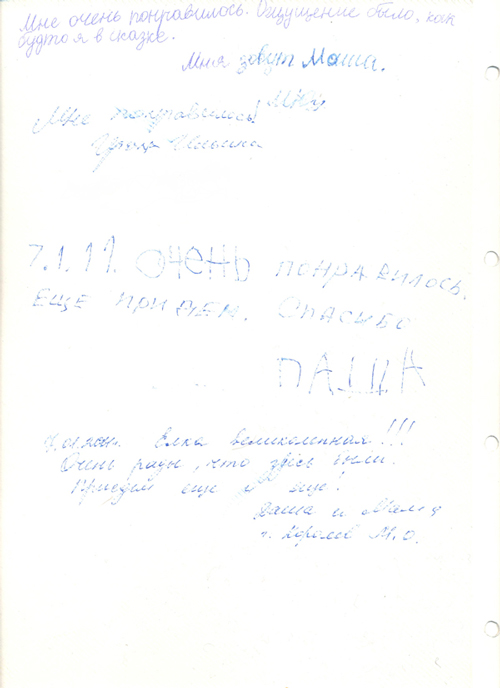 Мне очень понравилось. Ощущение было, как
будто я в сказке.
Мня зовут Маша.
Мне понравилось!
7.1.11. ОЧЕНЬ ПОНРАВИЛОСЬ.
ЕЩЕ ПРИДЕМ. СПАСИБО
ПАША
Ёлка великолепная!!!
Очень рады, что здесь были.
Приедем еще и еще!
Даша и
г. Королев М.О.